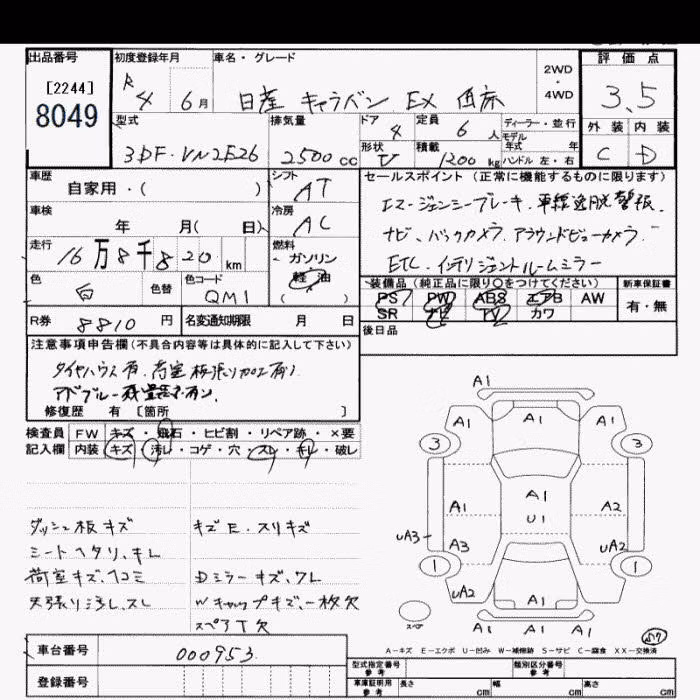 出品番号 初度登録年月 車名・グレード 2WD・4WD 評価点
[2244]
8049
R4 6月 日産 キャラバン EX 3.5
型式 排気量 ドア 4 定員 6人 ディーラー・並行 外装 内装
モデル年式 年
3DF-VN2E26 2500cc 形状 V 積載 1200kg ハンドル 左・右 C D
車歴 シフト セールスポイント(正常に機能するものに限ります)
自家用・( ) AT エマージェンシーブレーキ.車線逸脱警報.
車検 冷房
年 月( 日) AC ナビ、バックカメラ.アラウンドビューカメラ.
走行 燃料
16万8千820km ガソリン ETC.インテリジェントルームミラー
軽油
色 色替 色コード 装備品(純正品に限り○をつけてください) 新車保証書
白 QM1 ( ) PS PW ABS エアB AW 有・無
SR ナビ TV カワ
R券 8810円 名変通知期限 月 日 後日品
注意事項申告欄(不具合内容等は具体的に記入して下さい)
タイヤハウス有.荷室板張り加工有り
修復歴 有 [箇所 ]
検査員 FW キズ・飛石・ヒビ割・リペア跡・×要
記入欄 内装 キズ・汚レ・コゲ・穴・スレ・キレ・破レ
ダッシュ板キズ キズE.スリキズ
シートヘタリ、キレ
荷室キズ、ヘコミ Dミラーキズ、ワレ
天張り汚レ、スレ Wキャップキズ、一枚欠
スペアT欠
A1
A1 A1 A1
3 3
A1 A1 A2
U1
UA3 A3 UA2
1 1
UA2 A1
スペア A1 A1 A1
A-キズ E-エクボ U-凹み W-補修跡 S-サビ C-腐食 XX-交換済
車台番号 000953
登録番号
型式指定番号 参考 類別区分番号 参考
車庫証明用 参考 長さ cm 幅 cm 高さ cm